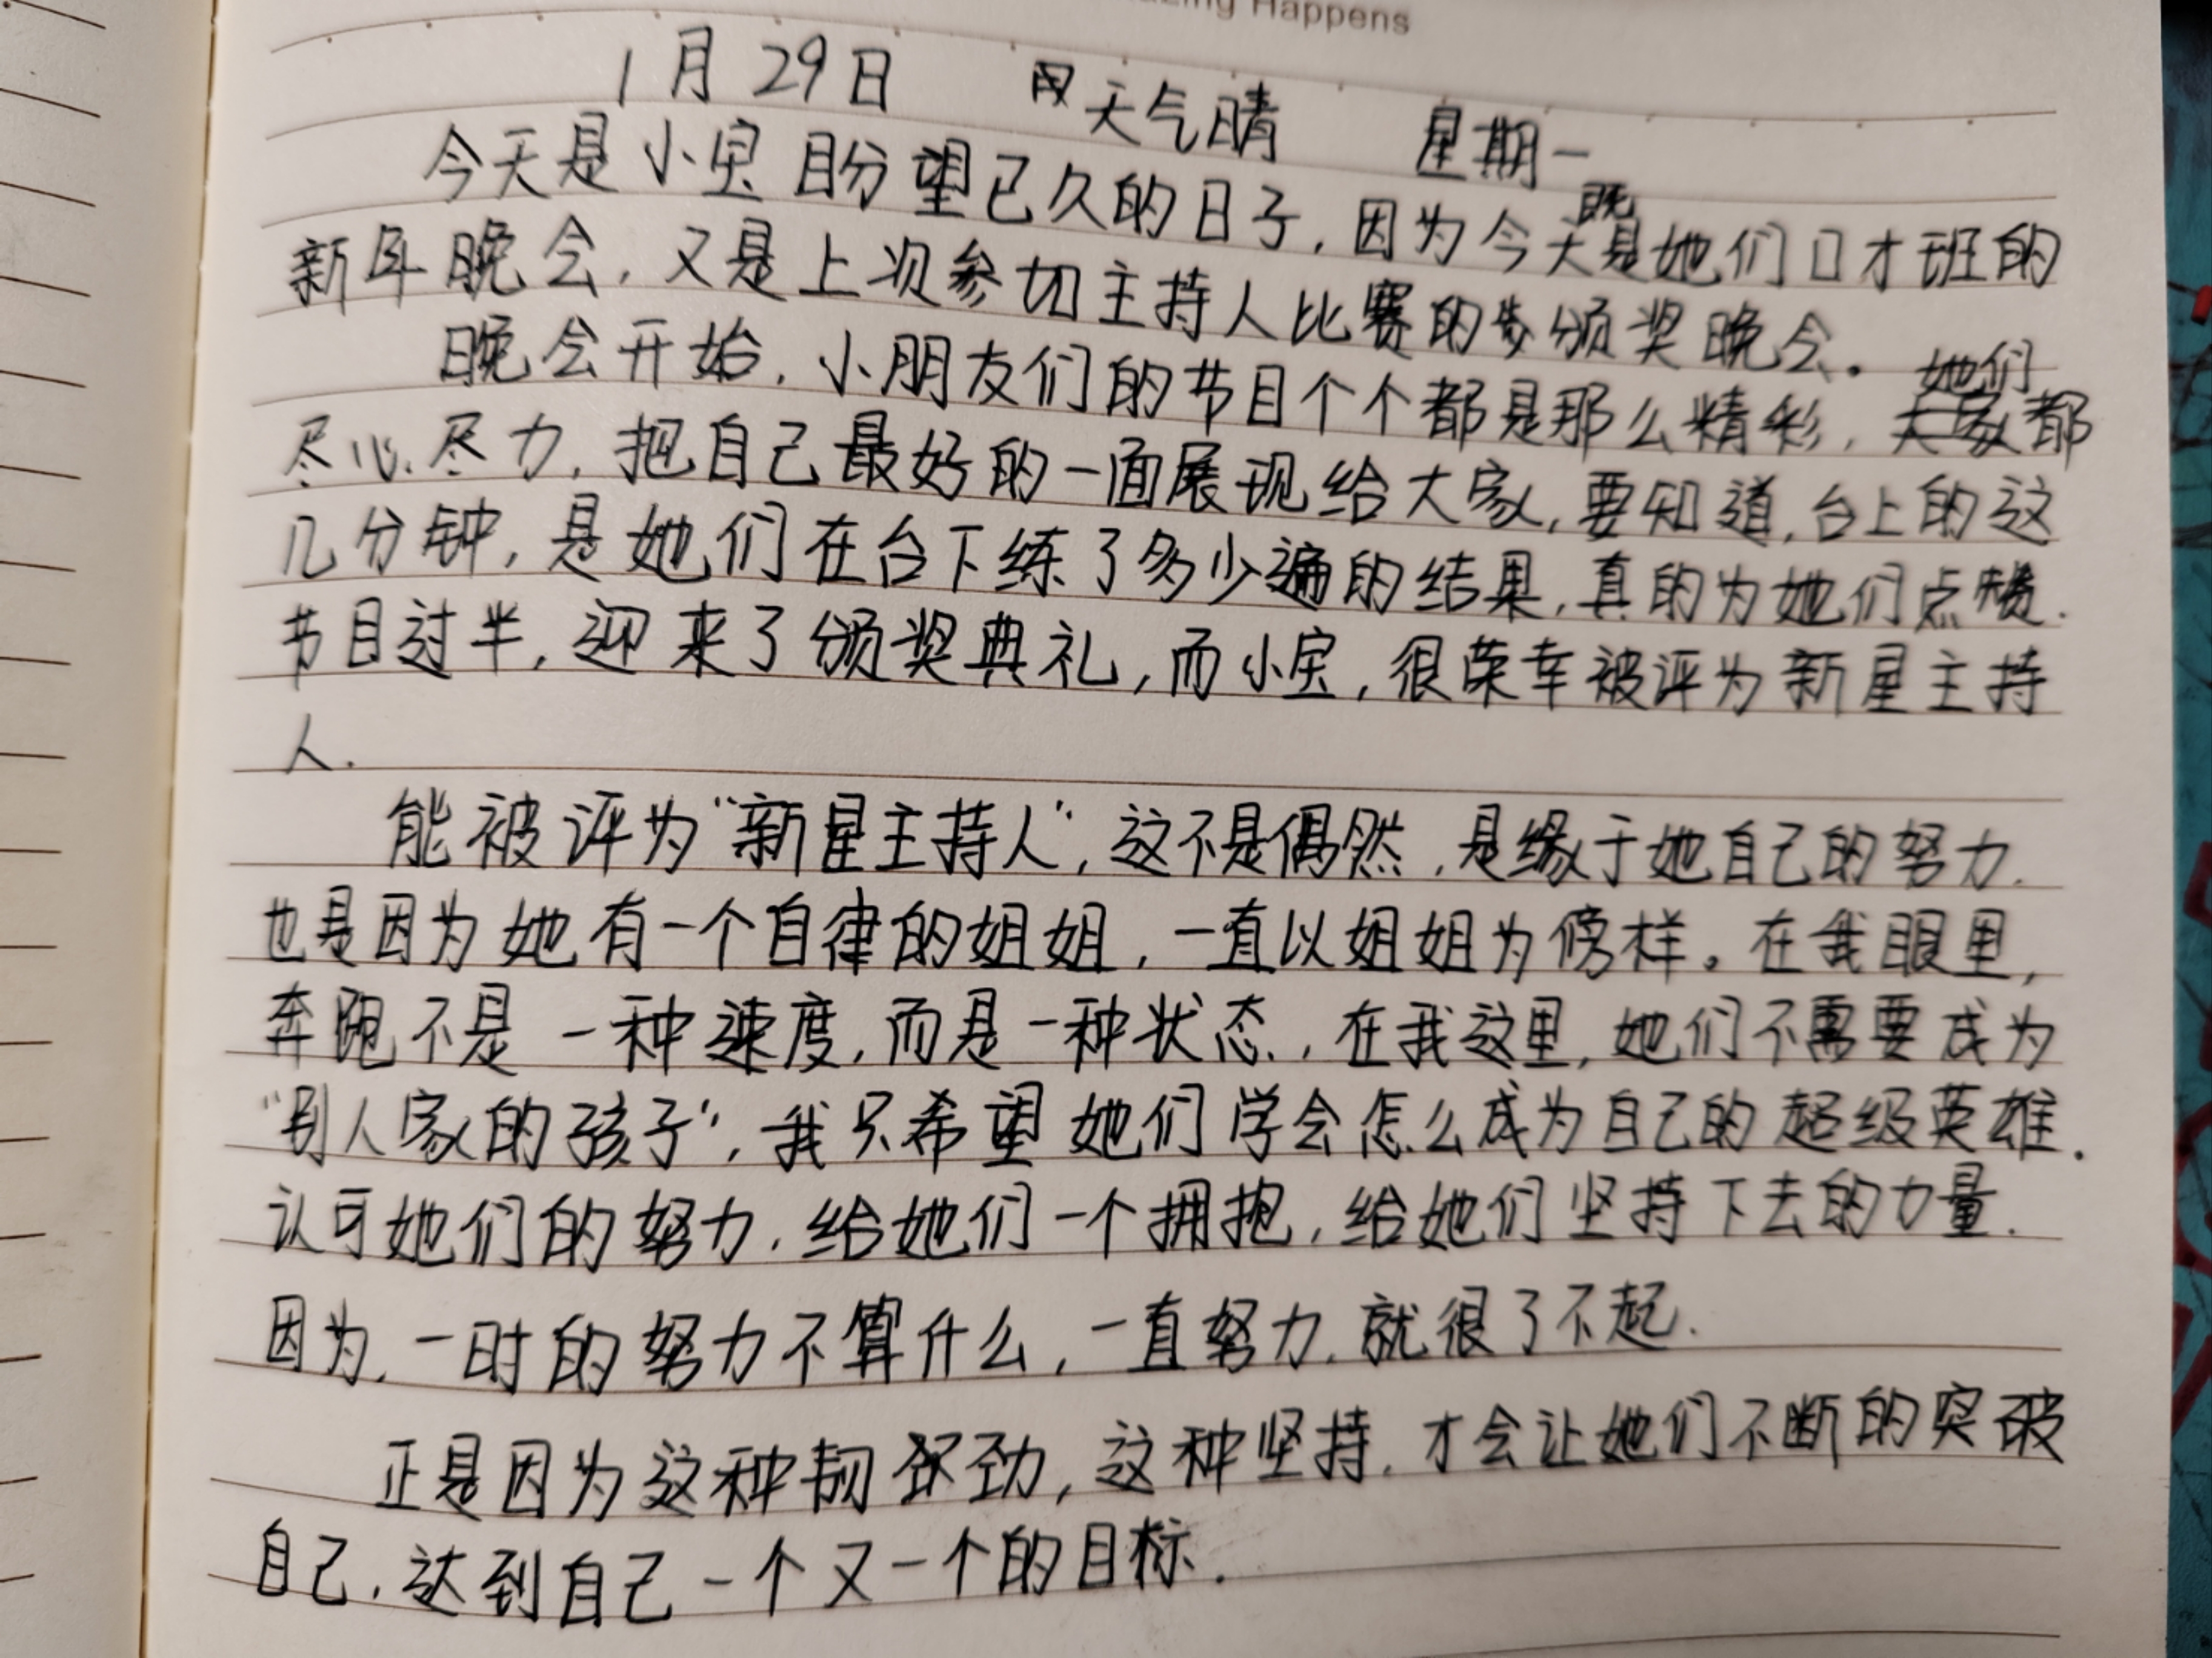 Happens
1月29日 天气晴 星期一
今天是小宝盼望已久的日子,因为今天既是她们口才班的
新年晚会,又是上次参加主持人比赛的颁奖晚会。
晚会开始,小朋友们的节目个个都是那么精彩,她们都
尽心尽力,把自己最好的一面展现给大家,要知道,台上的这
几分钟,是她们在台下练了多少遍的结果,真的为她们点赞.
节目过半,迎来了颁奖典礼,而小宝,很荣幸被评为新星主持
人.
能被评为“新星主持人”,这不是偶然,是缘于她自己的努力.
也是因为她有一个自律的姐姐,一直以姐姐为傍样。在我眼里,
奔跑不是一种速度,而是一种状态.,在我这里,她们不需要成为
“别人家的孩子”,我只希望她们学会怎么成为自己的超级英雄.
认可她们的努力,给她们一个拥抱,给她们坚持下去的力量.
因为,一时的努力不算什么,一直努力,就很了不起.
正是因为这种韧劲,这种坚持,才会让她们不断的突破
自己,达到自己一个又一个的目标.